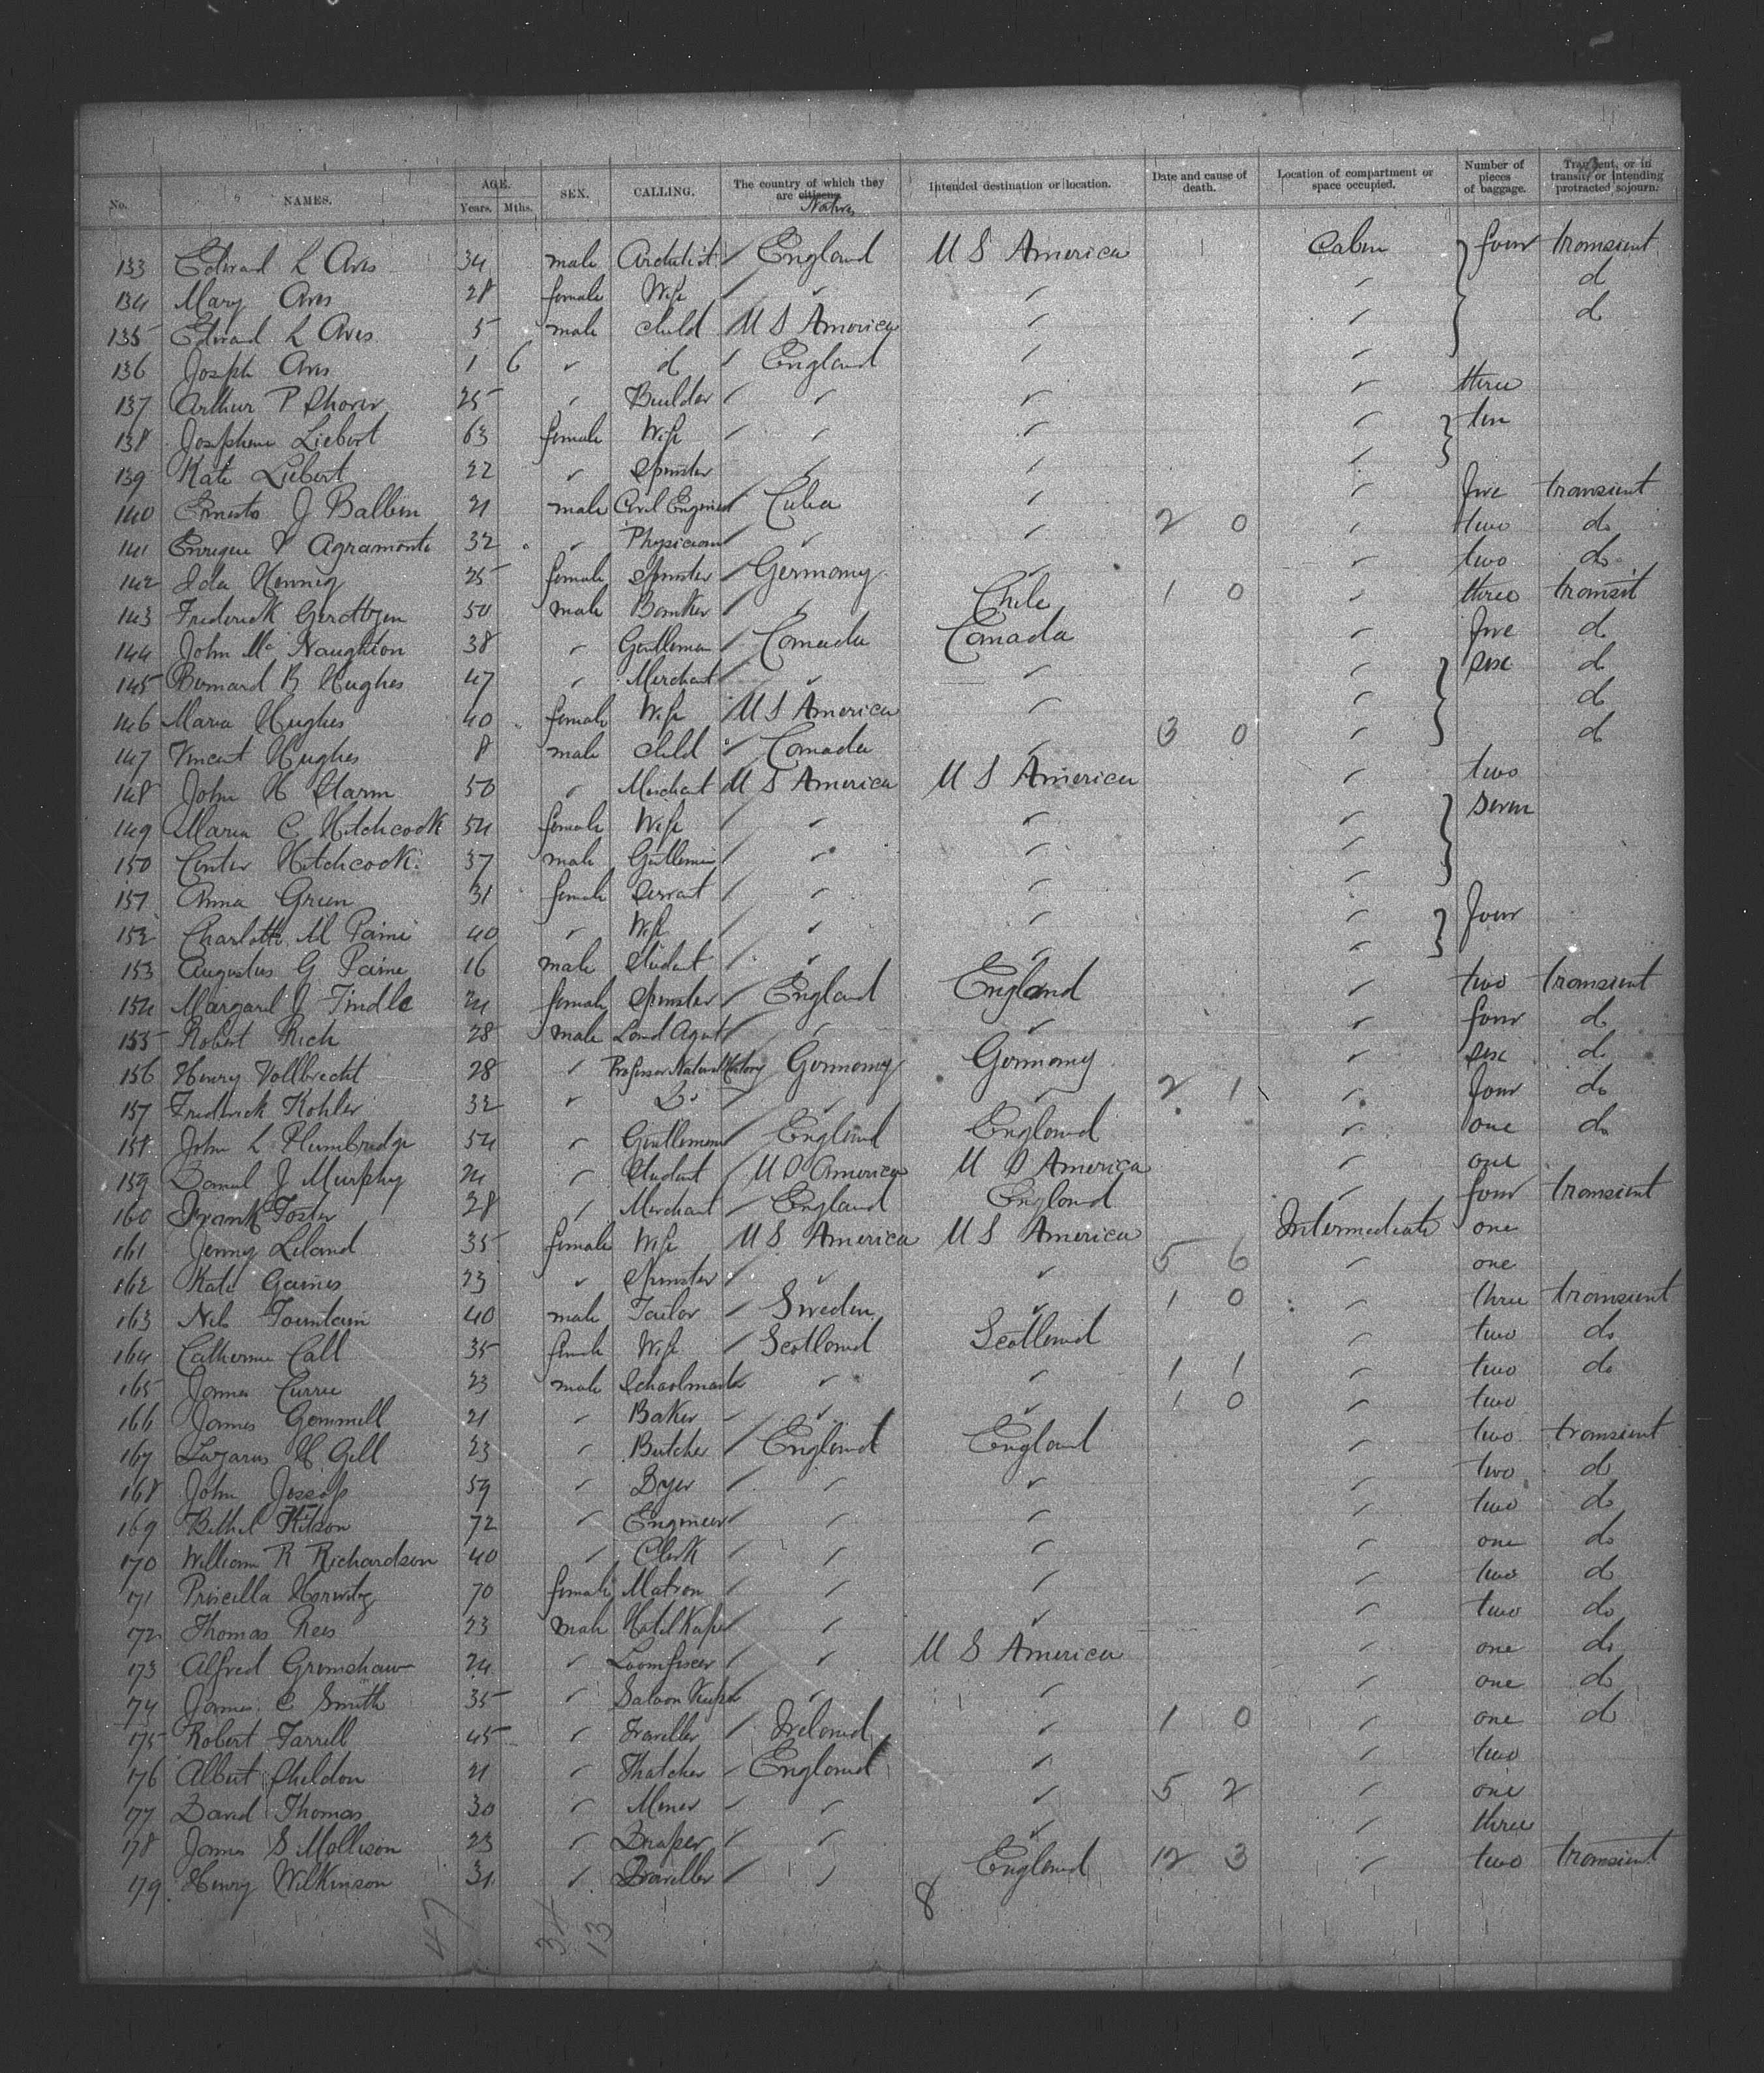 No. NAMES. AGE. Years. Mths. SEX. CALLING. The country of which they are citizens Natives Intended destination or location. Date and cause of death. Location of compartment or space occupied. Number of pieces of baggage. Transient, or in transit, or intending protracted sojourn.
133 Edward L Aves 34 male Architect ✓ England U S America Cabin } four transient
134 Mary Aves 28 female Wife ✓ ✓ ✓ ✓ d
135 Edward L Aves 5 male child ✓ U S America ✓ ✓ d
136 Joseph Aves 1 6 ✓ d ✓ England ✓ ✓
137 Arthur P Shorer 25 ✓ Builder ✓ ✓ ✓ ✓ three
138 Josephine Liebert 63 female Wife ✓ ✓ ✓ ✓ } ten
139 Kate Liebert 22 ✓ Spinster ✓ ✓ ✓
140 Ernesto J Balbin 21 male Civil Engineer Cuba ✓ ✓ five transient
141 Enrique Agramonte 32 ✓ Physician ✓ ✓ 2 0 ✓ two do
142 Ida Hennig 25 female Spinster ✓ Germany ✓ ✓ two do
143 Frederick Gerdtzen 50 male Banker ✓ ✓ Chile 1 0 ✓ three transit
144 John Mc Naughton 38 ✓ Gentleman ✓ Canada Canada ✓ five d
145 Bernard B Hughes 47 ✓ Merchant ✓ ✓ ✓ ✓ } six d
146 Maria Hughes 40 female Wife ✓ U S America ✓ ✓ d
147 Vincent Hughes 8 male child ✓ Canada ✓ 3 0 ✓ d
148 John H Starin 50 ✓ Merchant U S America U S America ✓ two
149 Maria C Hitchcock 54 female Wife ✓ ✓ ✓ ✓ } seven
150 Center Hitchcock 37 male Gentleman ✓ ✓ ✓ ✓
151 Anna Green 31 female Servant ✓ ✓ ✓ ✓
152 Charlotte M Paine 40 ✓ Wife ✓ ✓ ✓ ✓ } four
153 Augustus G Paine 16 male Student ✓ ✓ ✓ ✓
154 Margaret J Tindle 24 female Spinster ✓ England England ✓ two transient
155 Robert Rich 28 male Land Agent ✓ ✓ ✓ ✓ four d
156 Henry Vollbrecht 28 ✓ Professor Natural History Germany Germany ✓ six d
157 Frederick Kohler 32 ✓ Do ✓ ✓ ✓ 2 1 ✓ four do
158 John L Plumbridge 54 ✓ Gentleman ✓ England England ✓ one do
159 Daniel J Murphy 24 ✓ Student ✓ U S America U S America ✓ one
160 Frank Foster 28 ✓ Merchant ✓ England England ✓ four transient
161 Jenny Leland 35 female Wife U S America U S America Intermediate one
162 Kate Gaines 23 ✓ Spinster ✓ ✓ ✓ 5 6 ✓ one
163 Nils Fountain 40 male Tailor ✓ Sweden ✓ 1 0 ✓ three transient
164 Catherine Call 35 female Wife ✓ Scotland Scotland ✓ two do
165 James Currie 23 male Schoolmaster ✓ ✓ 1 1 ✓ two do
166 James Gemmell 21 ✓ Baker ✓ ✓ ✓ 1 0 ✓ two
167 Lazarus H Gill 23 ✓ Butcher ✓ England England ✓ two transient
168 John Jessop 59 ✓ Dyer ✓ ✓ ✓ ✓ two do
169 Bethel Kitson 72 ✓ Engineer ✓ ✓ ✓ ✓ two do
170 William R Richardson 40 ✓ Clerk ✓ ✓ ✓ ✓ one do
171 Priscilla Horwitz 70 female Matron ✓ ✓ ✓ ✓ two do
172 Thomas Rees 23 male Hotel Keeper ✓ ✓ ✓ ✓ two do
173 Alfred Grimshaw 24 ✓ Loomfixer ✓ ✓ U S America ✓ one do
174 James C Smith 35 ✓ Saloon Keeper ✓ ✓ ✓ one do
175 Robert Farrell 45 ✓ Traveller ✓ Ireland ✓ 1 0 ✓ one do
176 Albert Sheldon 21 ✓ Thatcher ✓ England ✓ ✓ two
177 David Thomas 30 ✓ Miner ✓ ✓ ✓ 5 2 ✓ one
178 James S Mollison 23 ✓ Draper ✓ ✓ ✓ ✓ three
179 Henry Wilkinson 31 ✓ Traveller ✓ ✓ England 12 3 ✓ two transient
47 34 13 8